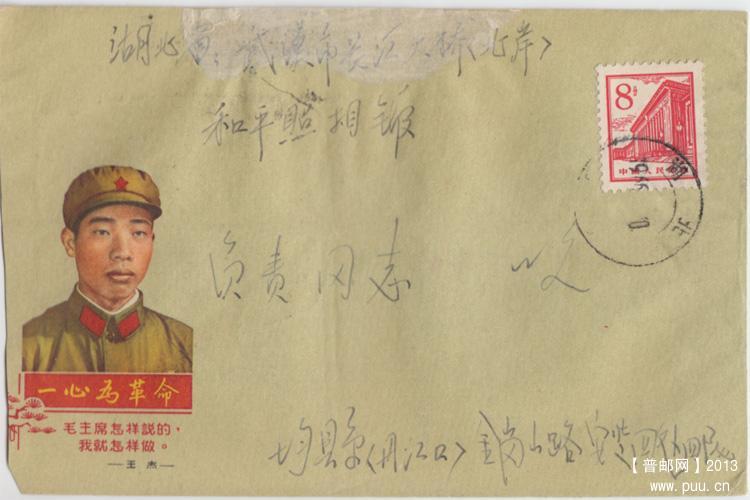 湖北省:武汉市长江大桥(北岸)
8分
中国人民邮政
和平照相馆
湖北
负责同志 收
一心为革命
毛主席怎样説的,
我就怎样做。
—王杰—
均县(丹江口)
【普邮网】2013
www.puu.cn